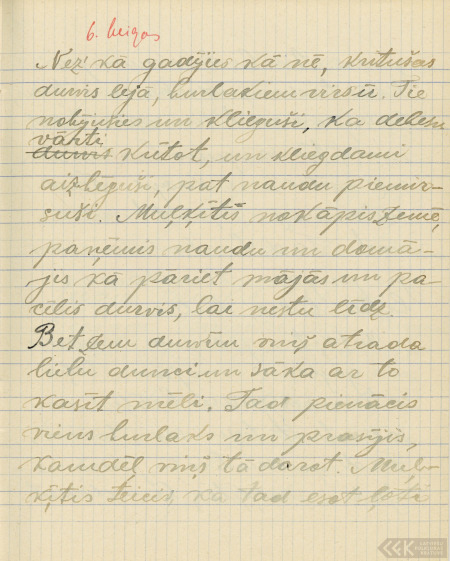 6. beigas
Nez' kā gadījies kā nē, kritušas
durvis lejā, burlakiem virsū. Tie
nobijušies un klieguši, ka debess
vārti
durvis krītot, un kliegdami
aizbēguši, pat naudu piemir-
suši. Muļķītis nokāpis zemē,
paņēmis naudu un domā-
jis kā pariet mājās un pa-
cēlis durvis, lai nestu līdz.
Bet zem durvīm viņš atrada
lielu dunci un sāka ar to
kasīt mēli. Tad pienācis
viens burlaks un prasījis,
kamdēļ viņš tā darot. Muļ-
ķītis teicis, ka tad esot ļoti